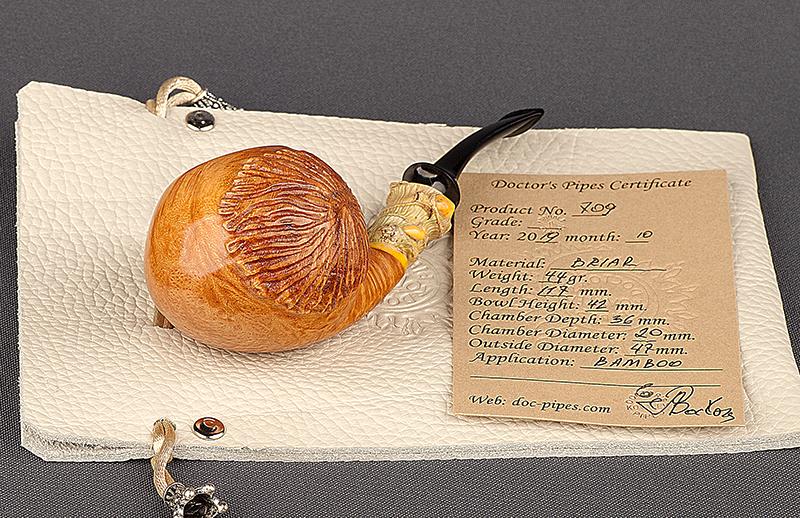 Doctor's Pipes Certificate
Product No. 709
Grade:
Year: 2019 month: 10
Material: BRIAR
Weight: 44 gr.
Length: 117 mm.
Bowl Height: 42 mm.
Chamber Depth: 36 mm.
Chamber Diameter: 20 mm.
Outside Diameter: 47 mm.
Application: BAMBOO
Web: doc-pipes.com